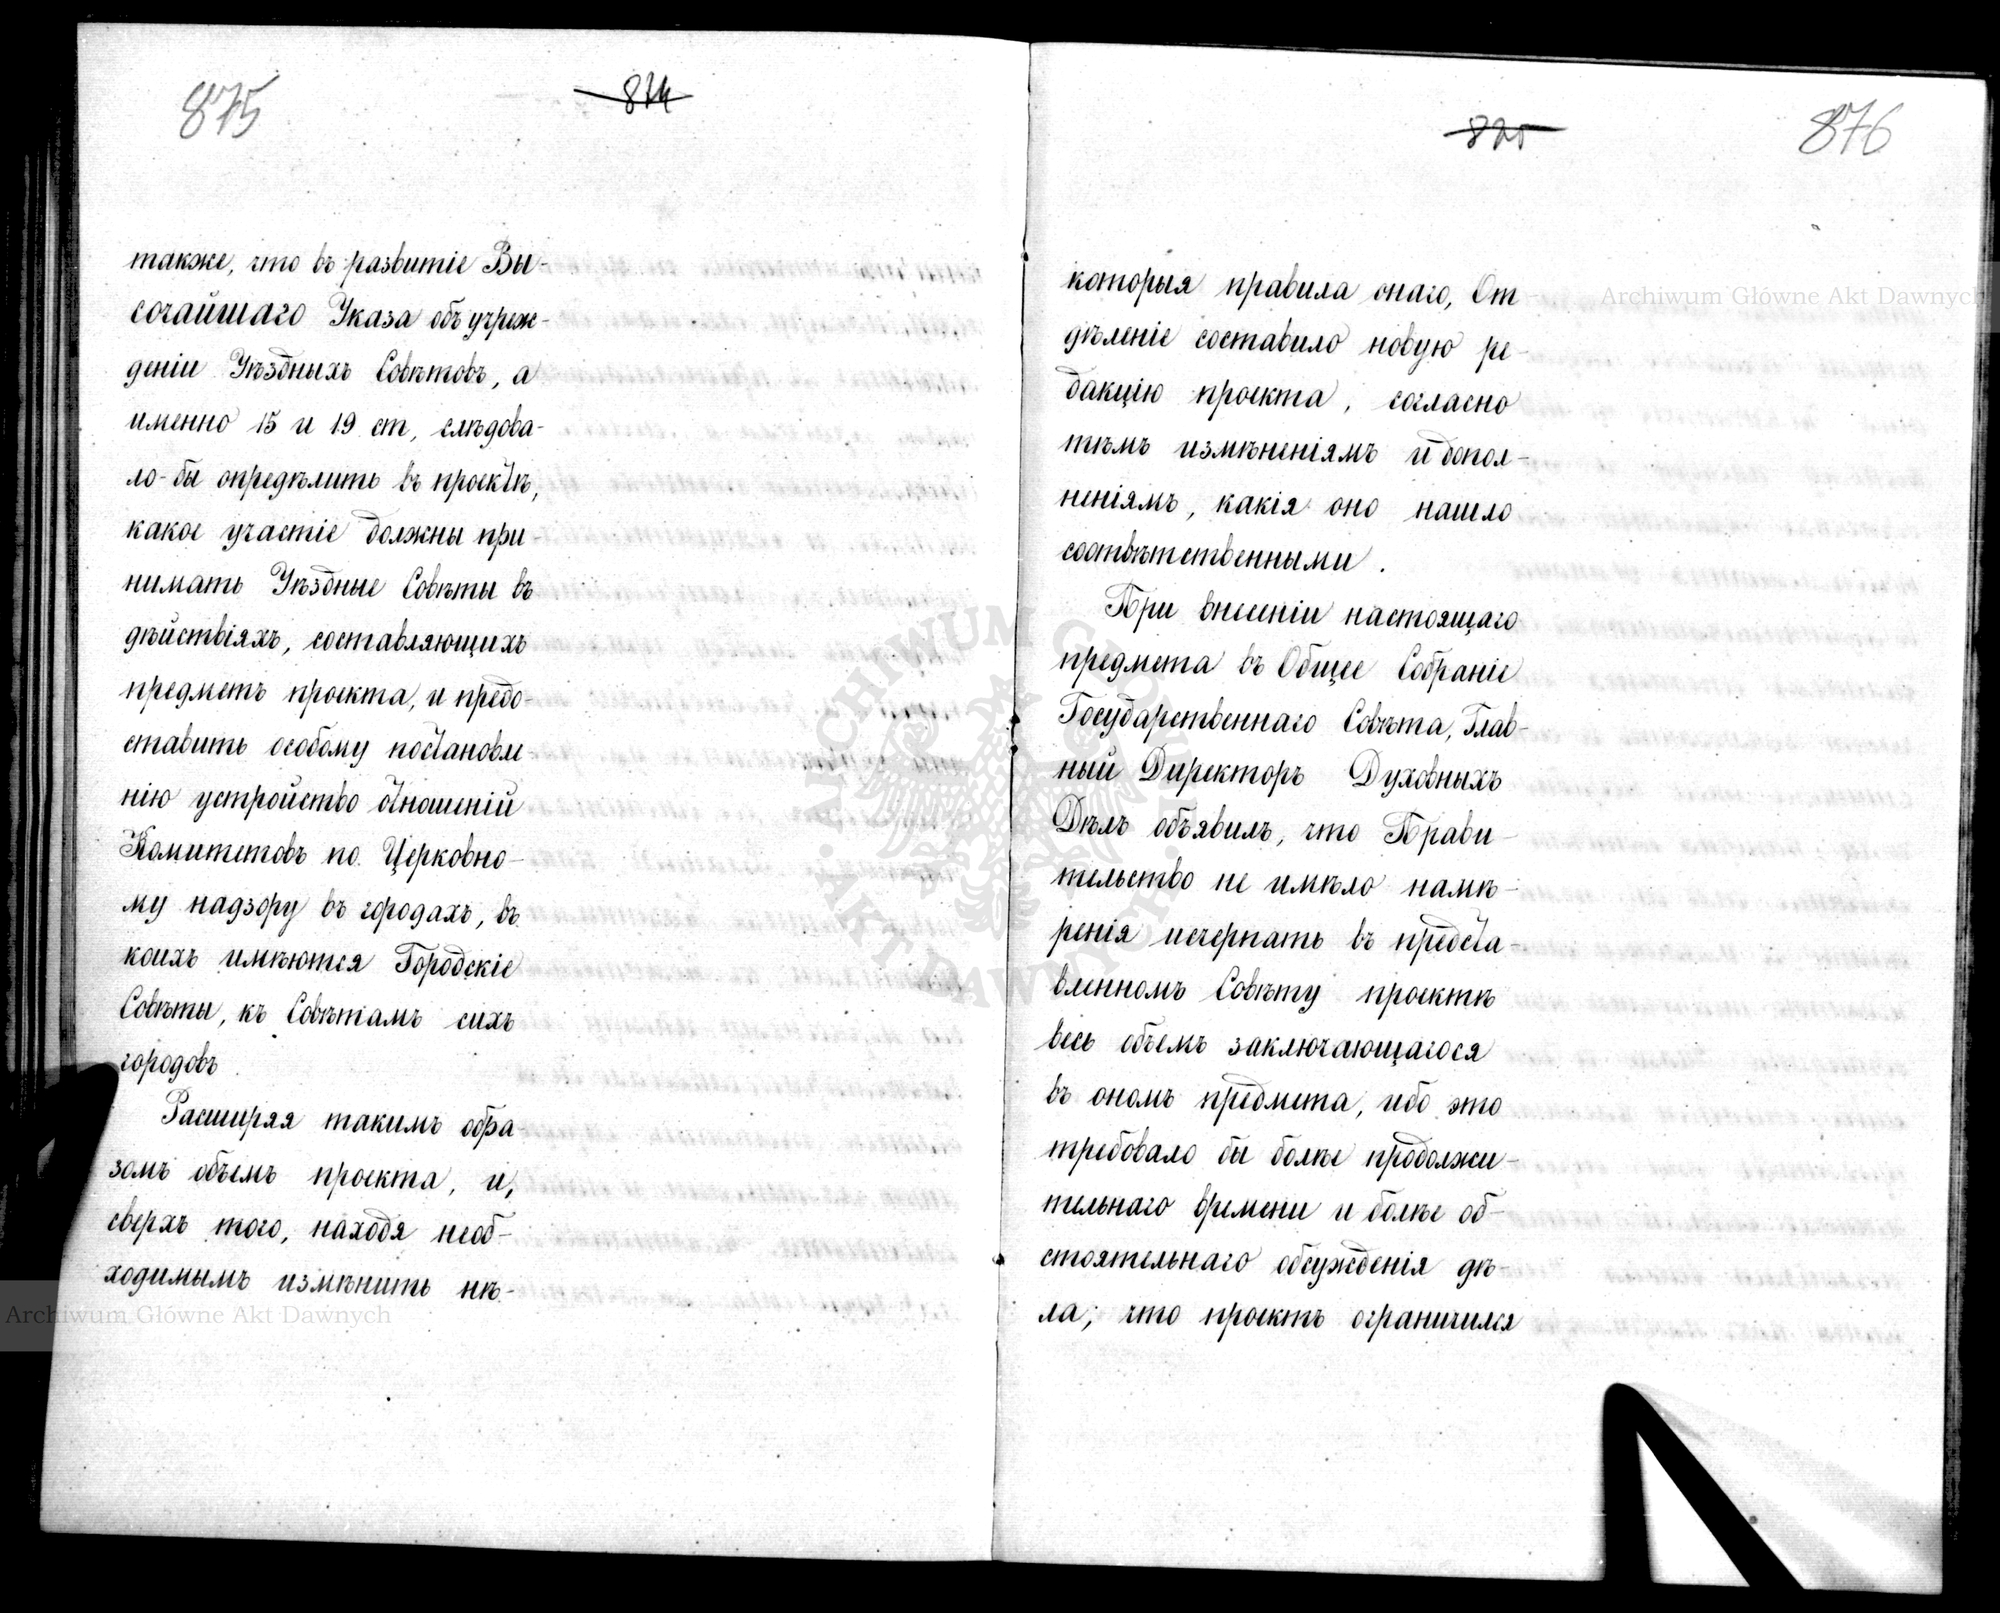 875
874
также, что въ развитіе Вы-
сочайшаго Указа объ учреж-
деніи Уѣздныхъ Совѣтовъ, а
именно 15 и 19 ст, слѣдова-
ло-бы опредѣлить въ проектѣ,
какое участіе должны при
нимать Уѣздные Совѣты въ
дѣйствіяхъ, составляющихъ
предметъ проекта, и предо-
ставить особому постановле
нію устройство отношеній
Комитетовъ по Церковно-
му надзору въ городахъ, въ
коихъ имѣются Городскіе
Совѣты, къ Совѣтамъ сихъ
городовъ.
Расширяя такимъ обра-
зомъ объемъ проекта, и,
сверхъ того, находя необ-
ходимымъ измѣнить нѣ-
Archiwum Główne Akt Dawnych
825
876
Archiwum Główne Akt Dawnych
которыя правила онаго, От-
дѣленіе составило новую ре-
дакцію проекта, согласно
тѣмъ измѣненіямъ и допол-
неніямъ, какія оно нашло
соотвѣтственными.
При внесеніи настоящаго
предмета въ Общее Собраніе
Государственнаго Совѣта, Глав-
ный Директоръ Духовныхъ
Дѣлъ объявилъ, что Прави-
тельство не имѣло намѣ-
ренія исчерпать въ предста-
вленномъ Совѣту проектѣ
весь объемъ заключающагося
въ ономъ предмета, ибо это
требовало бы болѣе продолжи-
тельнаго времени и болѣе об-
стоятельнаго обсужденія дѣ-
ла; что проектъ ограничился
ARCHIWUM GŁÓWNE AKT DAWNYCH